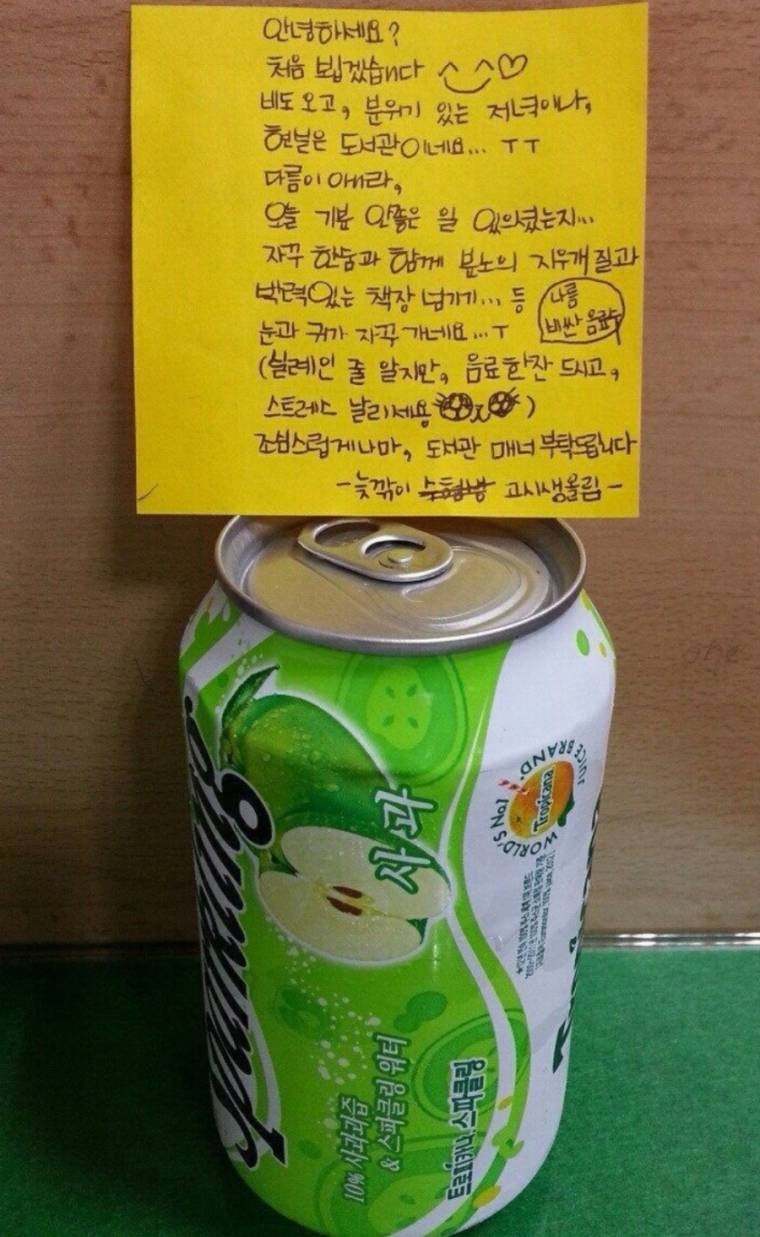 안녕하세요?
처음 뵙겠습니다 ^_^♡
비도 오고, 분위기 있는 저녁이나,
현실은 도서관이네요... ㅜㅜ
다름이 아니라,
오늘 기분 안좋은 일 있으셨는지...
자꾸 한숨과 함께 분노의 지우개질과
박력있는 책장 넘기기... 등
나름
비싼 음료수
눈과 귀가 자꾸 가네요...ㅜ
(실례인 줄 알지만, 음료 한잔 드시고,
스트레스 날리세용)
조심스럽게나마, 도서관 매너 부탁드립니다
-늦깎이 고시생올림-
Sparkling
사과
WORLD'S No1 JUICE BRAND.
Tropicana
10% 사과과즙
& 스파클링 워터
트로피카나 스파클링